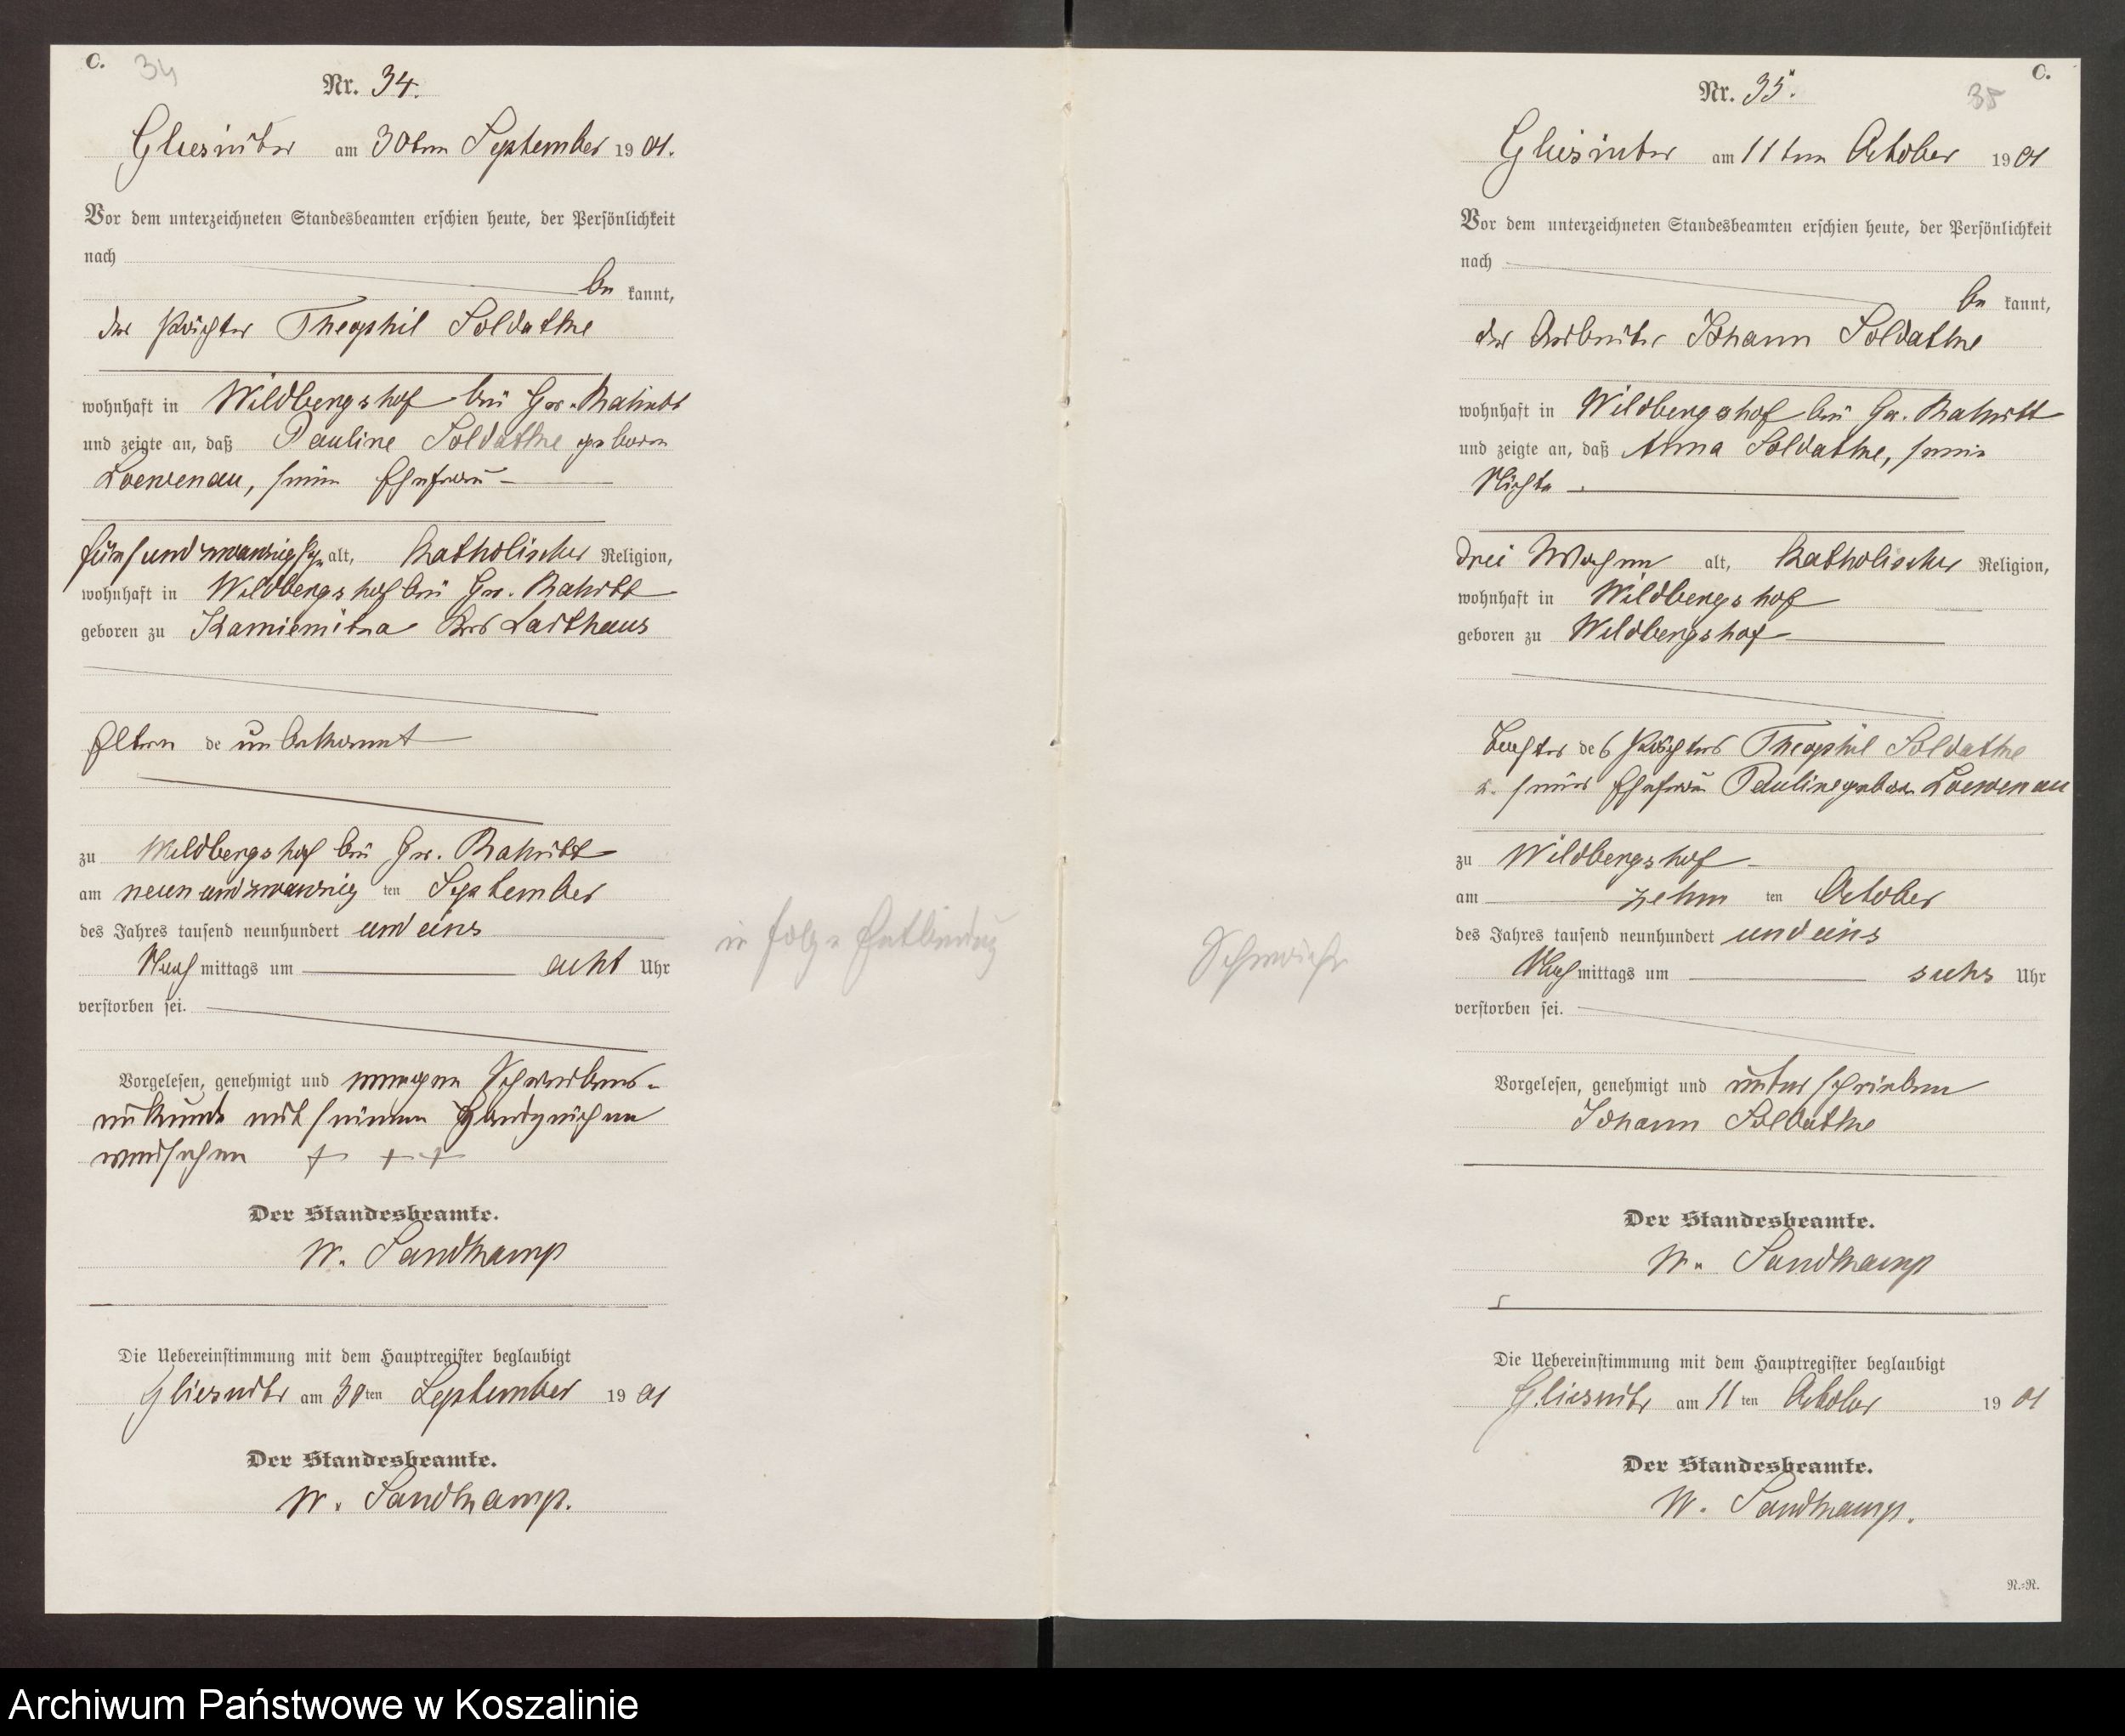 C.
34
Nr. 34.
Gliesnitz am 30ten September 1901.
Vor dem unterzeichneten Standesbeamten erschien heute, der Persönlichkeit
nach
be kannt,
der Pächter Theophil Soldathe
wohnhaft in Wildbergshof bei Gr. Rakitt
und zeigte an, daß Pauline Soldathe geboren
Loewenau, seine Ehefrau
fünfundzwanzig J. alt, Katholischer Religion,
wohnhaft in Wildbergshof bei Gr. Rakitt
geboren zu Kamienitza Krs Carthaus
Eltern de unbekannt
zu Wildbergshof bei Gr. Rakitt
am neunundzwanzig ten September
des Jahres tausend neunhundert und eins
Nach mittags um acht Uhr
verstorben sei.
in folge Entbindung
Vorgelesen, genehmigt und wegen Schreibens-
unkunde mit seinem Handzeichen
versehen + + +
Der Standesbeamte.
W. Sandkamp
Die Uebereinstimmung mit dem Hauptregister beglaubigt
Gliesnitz am 30ten September 1901
Der Standesbeamte.
W. Sandkamp.
C.
35
Nr. 35.
Gliesnitz am 11ten October 1901
Vor dem unterzeichneten Standesbeamten erschien heute, der Persönlichkeit
nach
be kannt,
der Arbeiter Johann Soldathe
wohnhaft in Wildbergshof bei Gr. Rakitt
und zeigte an, daß Anna Soldathe, seine
Nichte
drei Wochen alt, Katholischer Religion,
wohnhaft in Wildbergshof
geboren zu Wildbergshof
Tochter des Pächters Theophil Soldathe
u. seiner Ehefrau Pauline geboren Loewenau
zu Wildbergshof
am zehn ten October
des Jahres tausend neunhundert und eins
Nach mittags um sechs Uhr
verstorben sei.
Schwäche
Vorgelesen, genehmigt und unterschrieben
Johann Soldathe
Der Standesbeamte.
W. Sandkamp
Die Uebereinstimmung mit dem Hauptregister beglaubigt
Gliesnitz am 11ten October 1901
Der Standesbeamte.
W. Sandkamp.
N.=N.
Archiwum Państwowe w Koszalinie